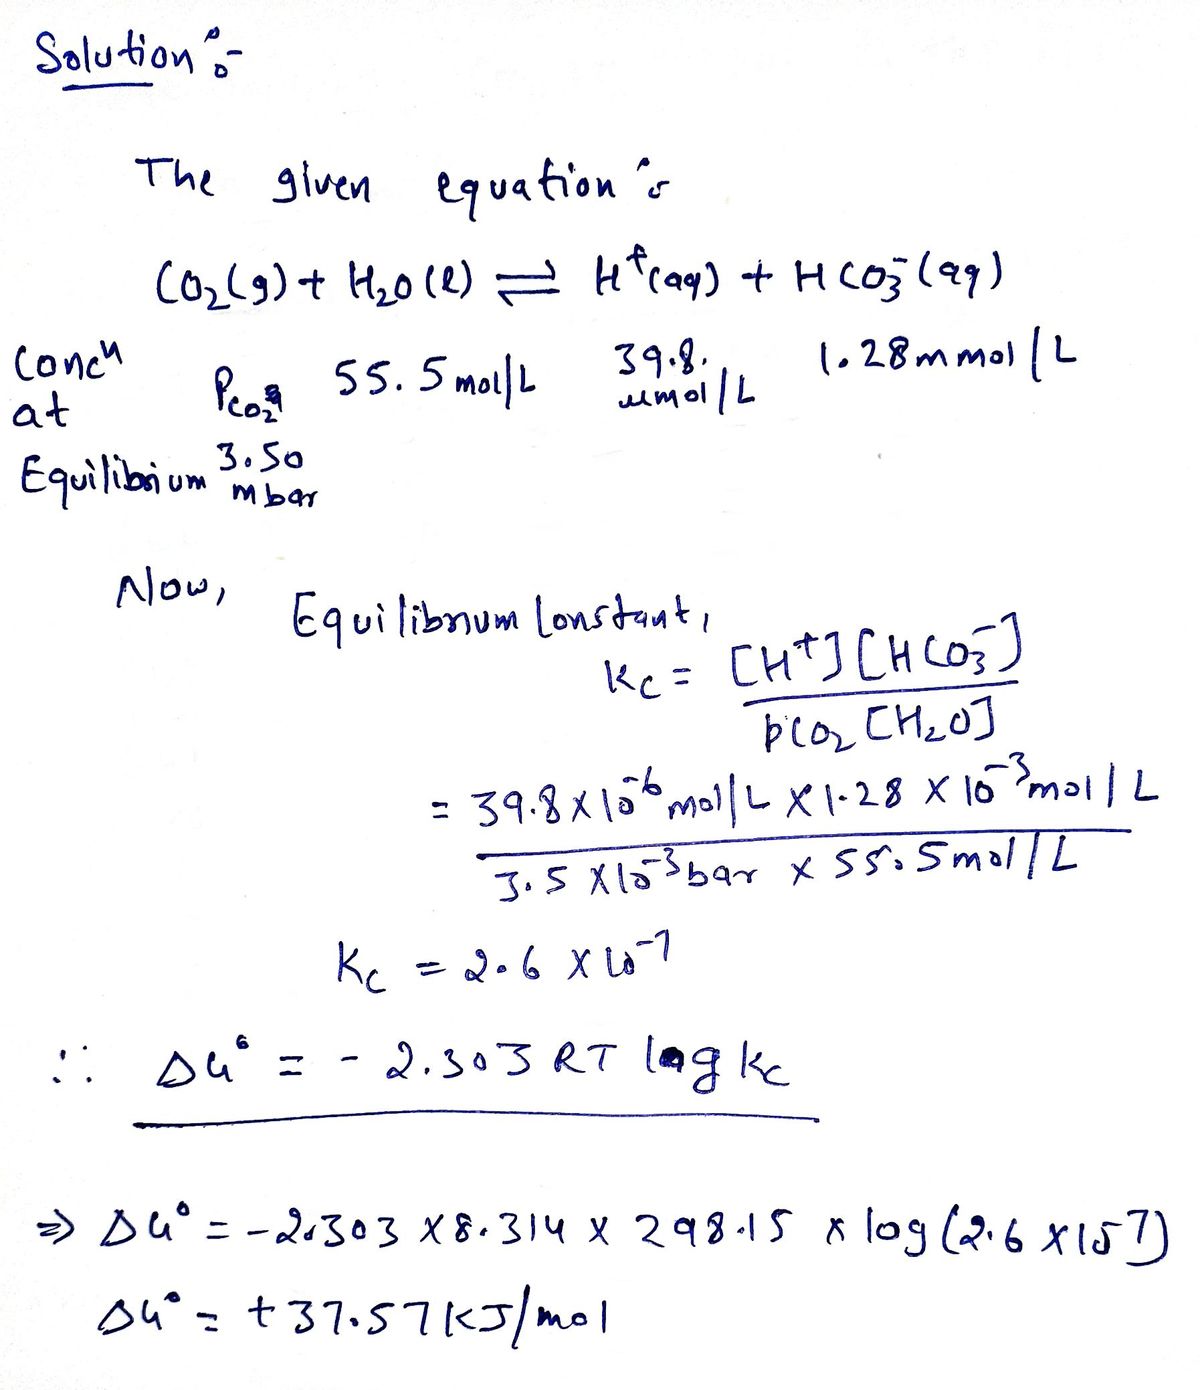 Solution :-
The given equation :
CO₂(g) + H₂O(l) ⇌ H⁺(aq) + HCO₃⁻(aq)
Concn at Equilibrium PCO₂ 3.50 mbar 55.5 mol/L 39.8 μmol/L 1.28 mmol/L
Now, Equilibrium Constant,
Kc = [H⁺][HCO₃⁻] / pCO₂ [H₂O]
= 39.8 × 10⁻⁶ mol/L × 1.28 × 10⁻³ mol/L / 3.5 × 10⁻³ bar × 55.5 mol/L
Kc = 2.6 × 10⁻⁷
∴ ΔG° = - 2.303 RT log Kc
⇒ ΔG° = -2.303 × 8.314 × 298.15 × log (2.6 × 10⁻⁷)
ΔG° = +37.57 KJ/mol